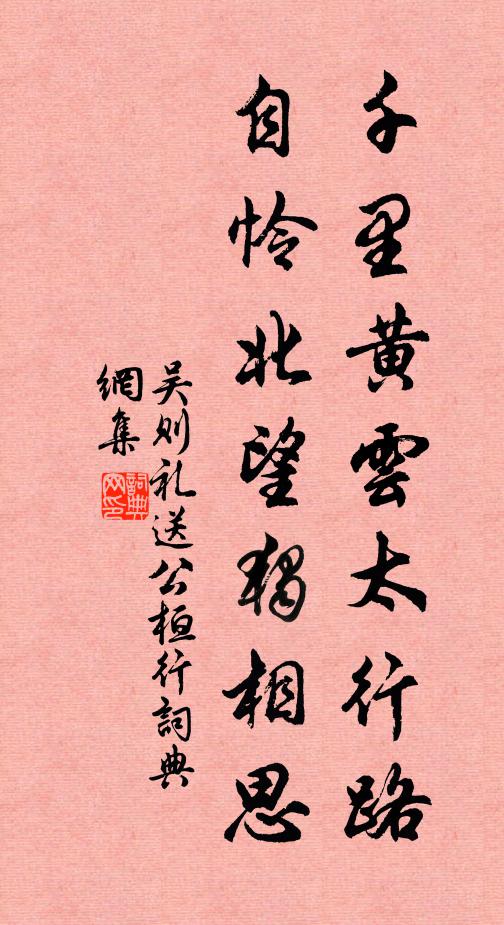 千里黄雲太行路
自怜北望獨相思
吴则礼送公桓行詞典
網集
詞典
网印